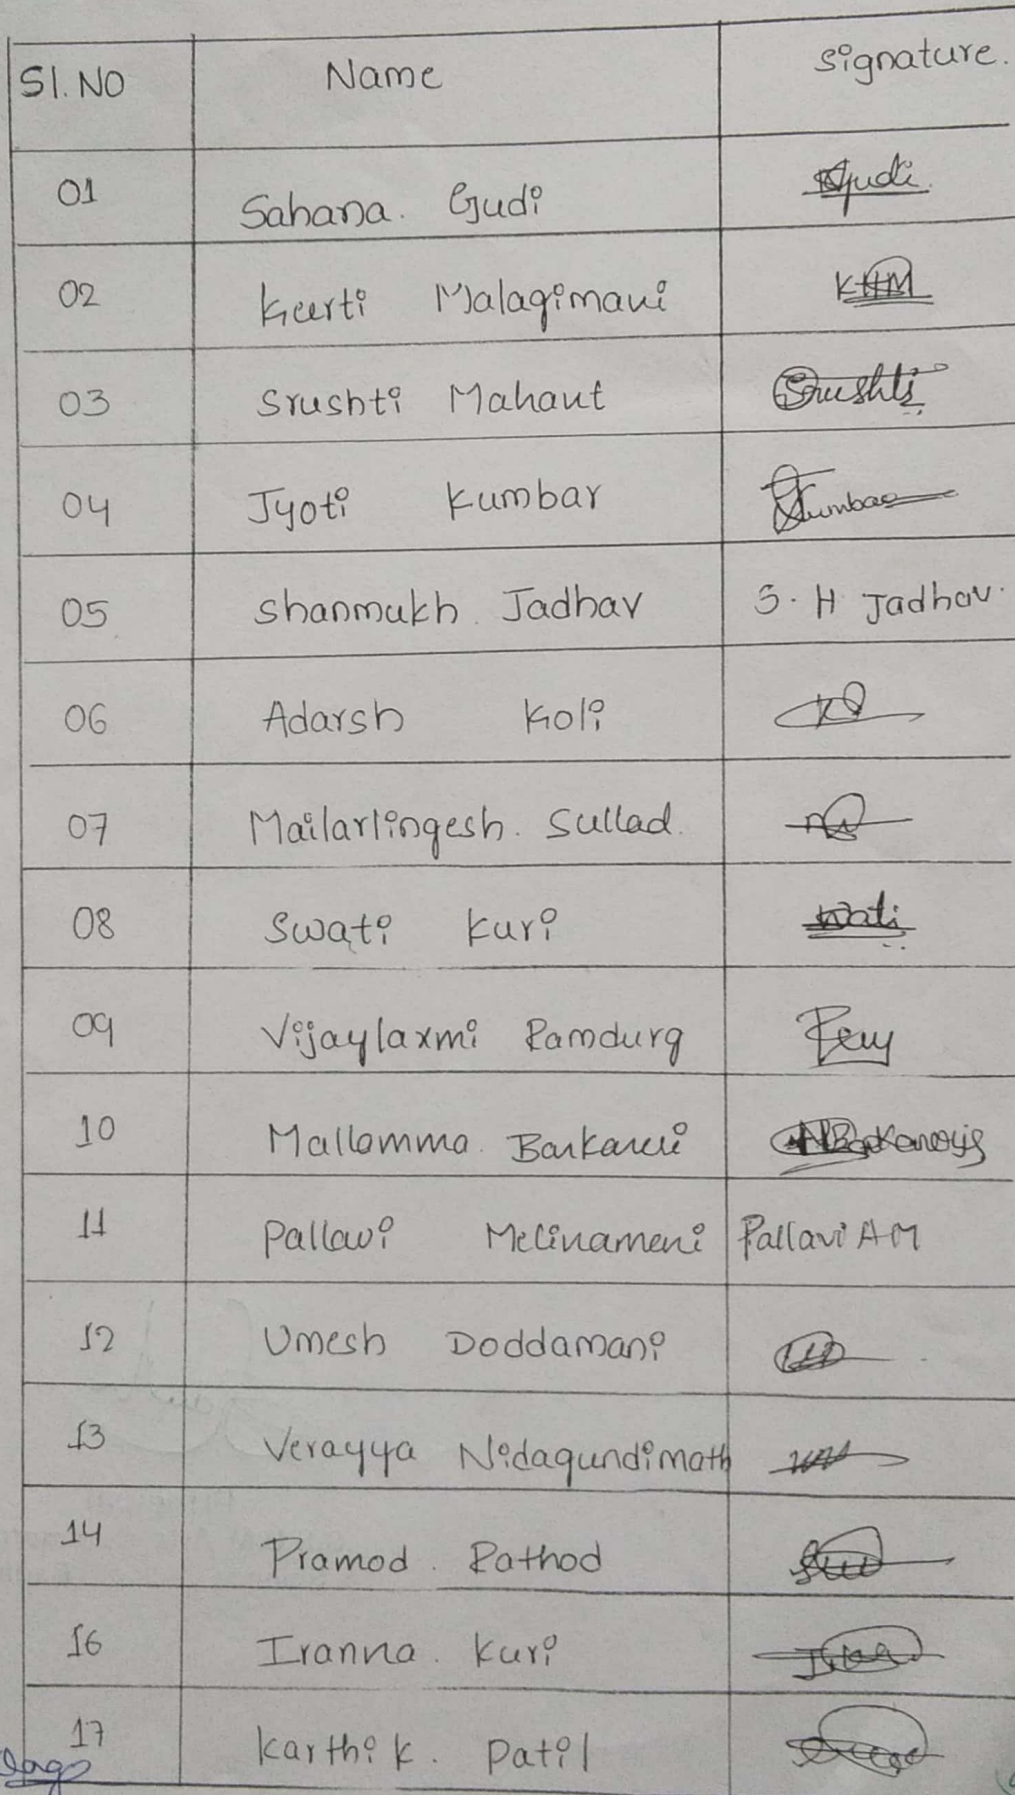 Sl. NO Name Signature.
01 Sahana. Gudi Gudi.
02 Keerti Malagimani KHM
03 Srushti Mahant Srushti
04 Jyoti Kumbar Kumbar
05 Shanmukh. Jadhav S. H Jadhav.
06 Adarsh Koli
07 Mailarlingesh. Sullad.
08 Swati Kuri wati
09 Vijaylaxmi Ramdurg
10 Mallamma.
11 Pallavi Pallavi A M
12 Umesh Doddamani
13 Verayya Nidagundimath
14 Pramod. Rathod
16 Iranna. Kuri
17 Karthik. Patil